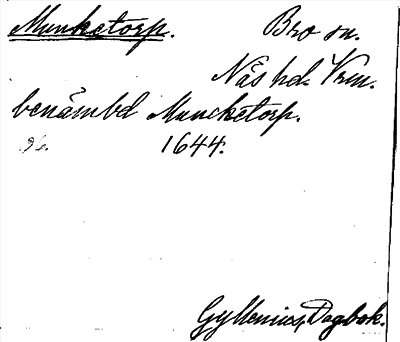 Munketorp. Bro sn.
Näs hd. Vrm.
benämbd Muncketorp.
96. 1644.
Gyllenius, Dagbok.